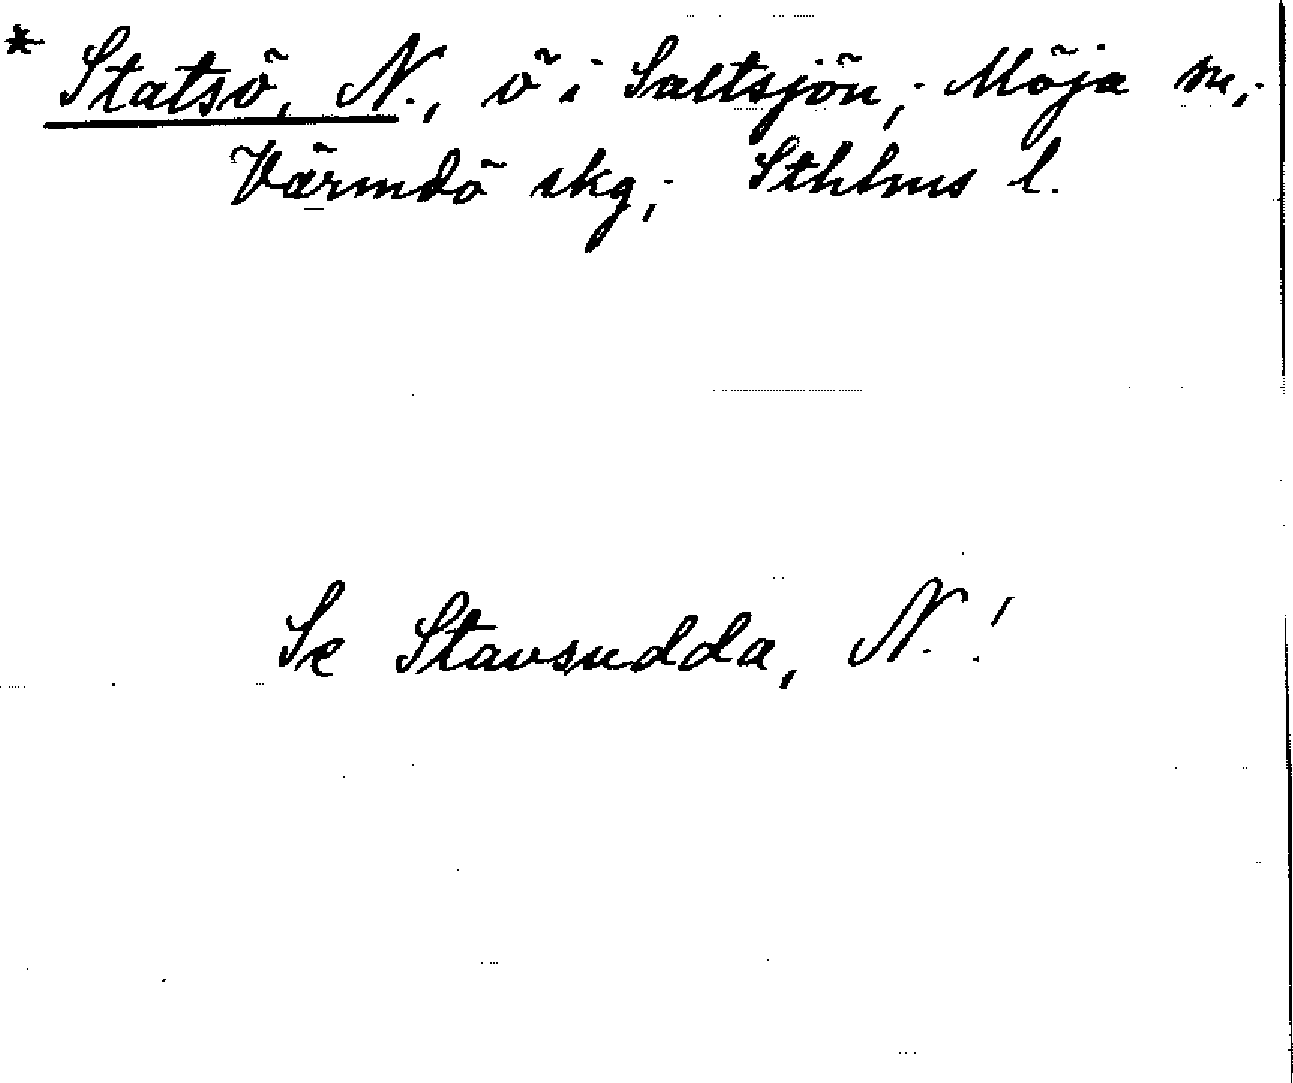 * Statsö, N., ö i Saltsjön, Möja sn,
Värmdö skg, Sthlms l.
Se Stavsudda, N.!